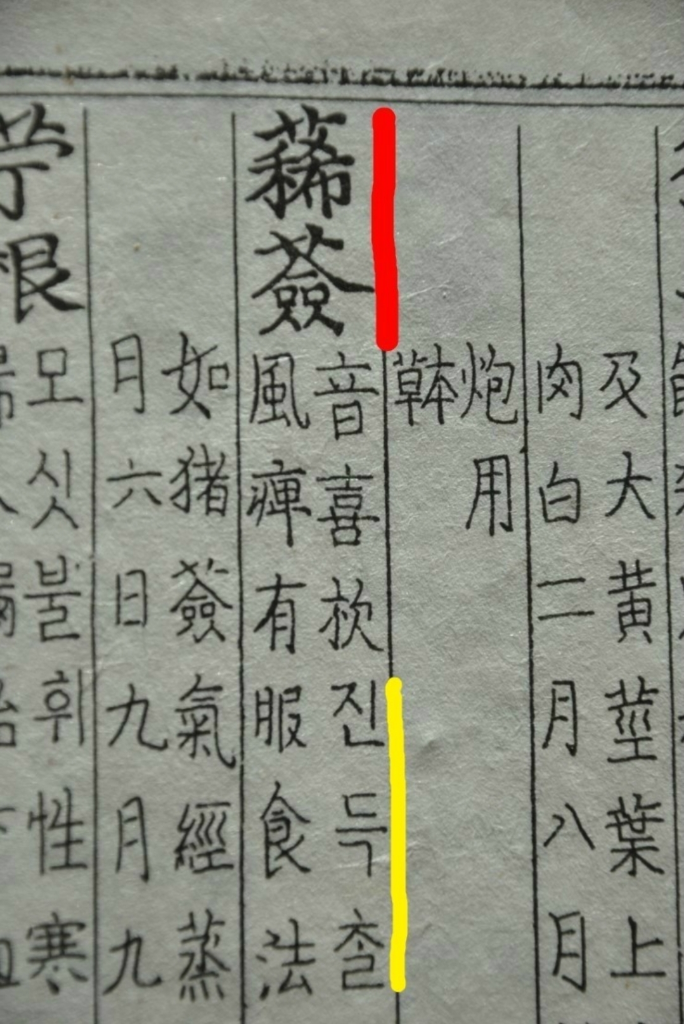 及大黃莖葉上
肉白二月八月
炮用
豨薟
音喜杴진득ᄎᆞᆯ
風痺有服食法
如猪薟氣經蒸
月六日九月九
苧根
모싯불휘性寒